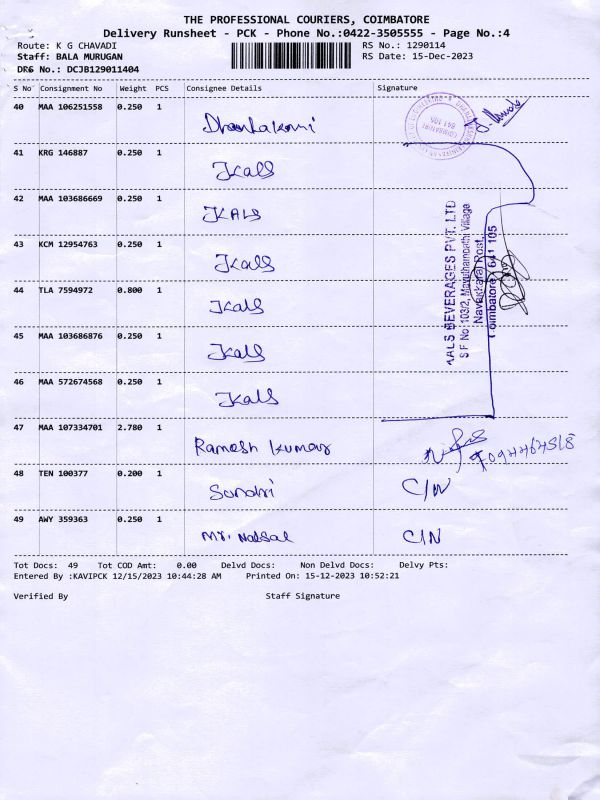 THE PROFESSIONAL COURIERS, COIMBATORE
Delivery Runsheet - PCK - Phone No.:0422-3505555 - Page No.:4
Route: K G CHAVADI RS No.: 1290114
Staff: BALA MURUGAN RS Date: 15-Dec-2023
DRS No.: DCJB129011404
S No Consignment No Weight PCS Consignee Details Signature
40 MAA 106251558 0.250 1
41 KRG 146887 0.250 1 Kals
42 MAA 103686669 0.250 1 KALS
43 KCM 12954763 0.250 1 Kals
44 TLA 7594972 0.800 1 Kals
45 MAA 103686876 0.250 1 Kals
46 MAA 572674568 0.250 1 Kals
KALS BEVERAGES PVT. LTD
S F No: 103/2, Mavuthampathi Village
Navakkarai Post,
Coimbatore - 641 105
47 MAA 107334701 2.780 1 Ramesh Kumar
48 TEN 100377 0.200 1 Sundri C/N
49 AWY 359363 0.250 1 Mr. C/N
Tot Docs: 49 Tot COD Amt: 0.00 Delvd Docs: Non Delvd Docs: Delvy Pts:
Entered By :KAVIPCK 12/15/2023 10:44:28 AM Printed On: 15-12-2023 10:52:21
Verified By Staff Signature